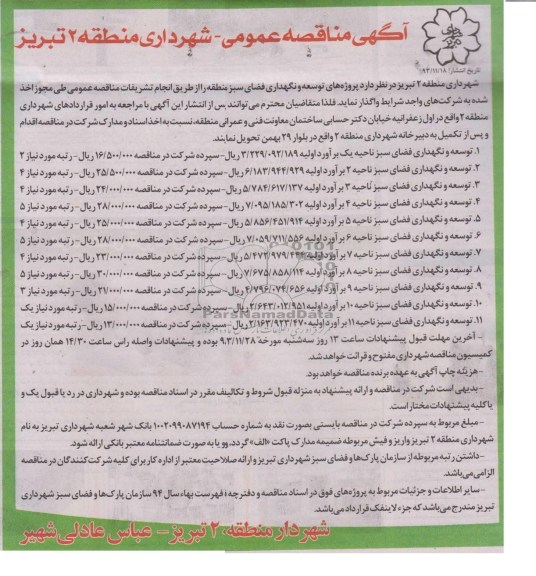 آگهی مناقصه عمومی - شهرداری منطقه ۲ تبریز
تاریخ انتشار: ۹۴/۱۱/۱۸
شهرداری منطقه ۲ تبریز در نظر دارد پروژه‌های توسعه و نگهداری فضای سبز منطقه را از طریق انجام تشریفات مناقصه عمومی طی مجوز اخذ
شده به شرکت‌های واجد شرایط واگذار نماید. فلذا متقاضیان محترم می‌توانند پس از انتشار این آگهی با مراجعه به امور قراردادهای شهرداری
منطقه ۲ واقع در اول زعفرانیه خیابان دکتر حسابی ساختمان معاونت فنی و عمرانی منطقه، نسبت به اخذ اسناد و مدارک شرکت در مناقصه اقدام
و پس از تکمیل به دبیرخانه شهرداری منطقه ۲ واقع در بلوار ۲۹ بهمن تحویل نمایند.
۱. توسعه و نگهداری فضای سبز ناحیه یک برآورد اولیه ۳/۲۲۹/۰۹۲/۱۸۹ ریال - سپرده شرکت در مناقصه ۱۶/۵۰۰/۰۰۰ ریال - رتبه مورد نیاز ۲
۲. توسعه و نگهداری فضای سبز ناحیه ۲ برآورد اولیه ۶/۱۸۳/۹۴۴/۹۲۹ ریال - سپرده شرکت در مناقصه ۲۵/۵۰۰/۰۰۰ ریال - رتبه مورد نیاز ۴
۳. توسعه و نگهداری فضای سبز ناحیه ۳ برآورد اولیه ۵/۷۸۴/۶۱۷/۱۳۷ ریال - سپرده شرکت در مناقصه ۲۴/۰۰۰/۰۰۰ ریال - رتبه مورد نیاز ۴
۴. توسعه و نگهداری فضای سبز ناحیه ۴ برآورد اولیه ۷/۰۹۵/۱۸۵/۳۰۲ ریال - سپرده شرکت در مناقصه ۲۸/۰۰۰/۰۰۰ ریال - رتبه مورد نیاز ۵
۵. توسعه و نگهداری فضای سبز ناحیه ۵ برآورد اولیه ۵/۸۵۶/۴۵۱/۹۱۴ ریال - سپرده شرکت در مناقصه ۲۵/۰۰۰/۰۰۰ ریال - رتبه مورد نیاز ۴
۶. توسعه و نگهداری فضای سبز ناحیه ۶ برآورد اولیه ۷/۰۵۹/۷۱۱/۵۵۶ ریال - سپرده شرکت در مناقصه ۲۸/۰۰۰/۰۰۰ ریال - رتبه مورد نیاز ۵
۷. توسعه و نگهداری فضای سبز ناحیه ۷ برآورد اولیه ریال - سپرده شرکت در مناقصه ۲۳/۰۰۰/۰۰۰ ریال - رتبه مورد نیاز ۴
۸. توسعه و نگهداری فضای سبز ناحیه ۸ برآورد اولیه ۷/۶۷۵/۸۵۸/۱۱۴ ریال - سپرده شرکت در مناقصه ۳۰/۰۰۰/۰۰۰ ریال - رتبه مورد نیاز ۵
۹. توسعه و نگهداری فضای سبز ناحیه ۹ برآورد اولیه ۴/۷۹۶/۰۷۴/۶۵۶ ریال - سپرده شرکت در مناقصه ۲۱/۰۰۰/۰۰۰ ریال - رتبه مورد نیاز ۳
۱۰. توسعه و نگهداری فضای سبز ناحیه ۱۰ برآورد اولیه ۲/۶۴۳/۰۱۲/۹۵۱ ریال - سپرده شرکت در مناقصه ۱۵/۰۰۰/۰۰۰ ریال - رتبه مورد نیاز یک
۱۱. توسعه و نگهداری فضای سبز ناحیه ۱۱ برآورد اولیه ۲/۱۶۳/۹۲۳/۴۷۰ ریال - سپرده شرکت در مناقصه ۱۳/۰۰۰/۰۰۰ ریال - رتبه مورد نیاز یک
- آخرین مهلت قبول پیشنهادات ساعت ۱۳ روز سه‌شنبه مورخه ۹۴/۱۱/۲۸ بوده و پیشنهادات واصله راس ساعت ۱۴/۳۰ همان روز در
کمیسیون مناقصه شهرداری مفتوح و قرائت خواهد شد.
- هزینه چاپ آگهی به عهده برنده مناقصه خواهد بود.
- بدیهی است شرکت در مناقصه و ارائه پیشنهاد به منزله قبول شروط و تکالیف مقرر در اسناد مناقصه بوده و شهرداری در رد یا قبول یک و
یا کلیه پیشنهادات مختار است.
- مبلغ مربوط به سپرده شرکت در مناقصه بایستی بصورت نقد به شماره حساب ۱۰۰۲۰۹۹۰۸۷۱۹۴ بانک شهر شعبه شهرداری تبریز به نام
شهرداری منطقه ۲ تبریز واریز و فیش مربوطه ضمیمه مدارک پاکت «الف» گردد، و یا به صورت ضمانتنامه معتبر بانکی ارائه شود.
- داشتن رتبه مربوطه از سازمان پارک‌ها و فضای سبز شهرداری تبریز و ارائه صلاحیت معتبر از اداره کار برای کلیه شرکت‌کنندگان در مناقصه
الزامی می‌باشد.
- سایر اطلاعات و جزئیات مربوط به پروژه‌های فوق در اسناد مناقصه و دفترچه «فهرست بهاء سال ۹۴ سازمان پارک‌ها و فضای سبز شهرداری
تبریز مندرج می‌باشد که جزء لاینفک قرارداد می‌باشد.
شهردار منطقه ۲ تبریز - عباس عادلی شهیر
ParsNamadData